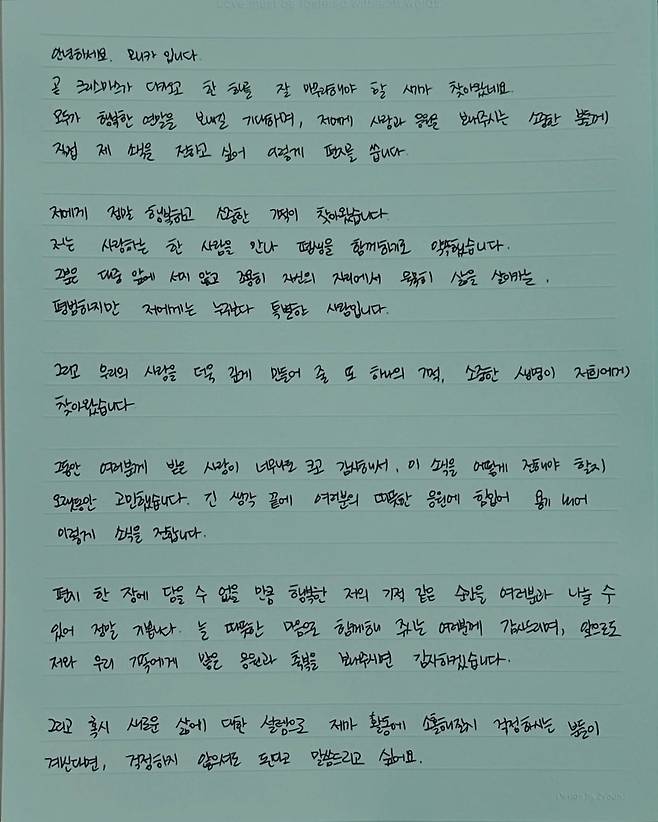 Love must be fostered with soft words.
안녕하세요. 모니카 입니다.
곧 크리스마스가 다가오고 한 해를 잘 마무리해야 할 시기가 찾아왔네요.
모두가 행복한 연말을 보내길 기대하며, 저에게 사랑과 응원을 보내주시는 소중한 분들께
직접 제 소식을 전하고 싶어 이렇게 편지를 씁니다.
저에게 정말 행복하고 소중한 기적이 찾아왔습니다.
저는 사랑하는 한 사람을 만나 평생을 함께하기로 약속했습니다.
그분은 대중 앞에 서지 않고 조용히 자신의 자리에서 묵묵히 삶을 살아가는,
평범하지만 저에게는 누구보다 특별한 사람입니다.
그리고 우리의 사랑을 더욱 깊게 만들어 줄 또 하나의 기적, 소중한 생명이 저희에게
찾아왔습니다
그동안 여러분께 받은 사랑이 너무나도 크고 감사해서, 이 소식을 어떻게 전해야 할지
오랫동안 고민했습니다. 긴 생각 끝에 여러분의 따뜻한 응원에 힘입어 용기 내어
이렇게 소식을 전합니다.
편지 한 장에 담을 수 없을 만큼 행복한 저의 기적 같은 순간을 여러분과 나눌 수
있어 정말 기쁩니다. 늘 따뜻한 마음으로 함께해 주시는 여러분께 감사드리며, 앞으로도
저와 우리 가족에게 많은 응원과 축복을 보내주시면 감사하겠습니다.
그리고 혹시 새로운 삶에 대한 설렘으로 제가 활동에 소홀해질지 걱정하시는 분들이
계신다면, 걱정하지 않으셔도 된다고 말씀드리고 싶어요.